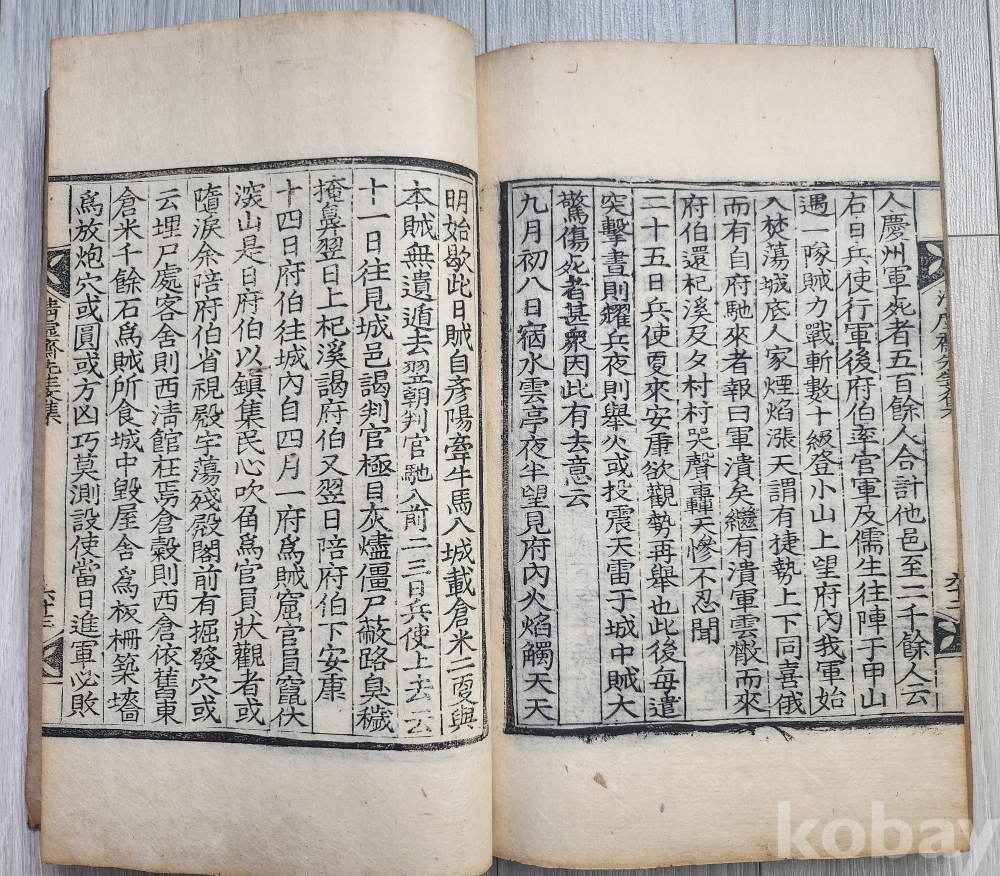 人慶州軍死者五百餘人合計他邑至二千餘人云
右日兵使行軍後府伯率官軍及儒生往陣于甲山
遇一隊賊力戰斬數十級登小山上望府內我軍始
入焚蕩城底人家煙焰漲天謂有捷勢上下同喜俄
而有自府馳來者報曰軍潰矣繼有潰軍雲檄而來
府伯還杞溪及夕村村哭聲轟天慘不忍聞
二十五日兵使更來安康欲觀勢再舉也此後毋遣
突擊晝則耀兵夜則舉火或投震天雷于城中賊大
驚傷死者甚衆因此有去意云
九月初八日宿水雲亭夜半望見府內火焰觸天天
六十二
明始歇此日賊自彥陽牽牛馬入城載倉米二更與
本賊無遺遁去翌朝判官馳入前二三日兵使上去云
十一日往見城邑謁判官極目灰燼僵尸蔽路臭穢
掩鼻翌日上杞溪謁府伯又翌日陪府伯下安康
十四日府伯往城內自四月一府爲賊窟官員竄伏
深山是日府伯以鎮集民心吹角爲官員狀觀者或
墮淚余陪府伯省視殿宇蕩殘殿閣前有掘發穴或
云埋尸處客舍則西淸館在焉倉穀則西倉依舊東
倉米千餘石爲賊所食城中毀屋舍爲板柵築墻
爲放炮穴或圓或方凶巧莫測設使當日進軍必敗
淸虛齋先生文集
六十三
kobay